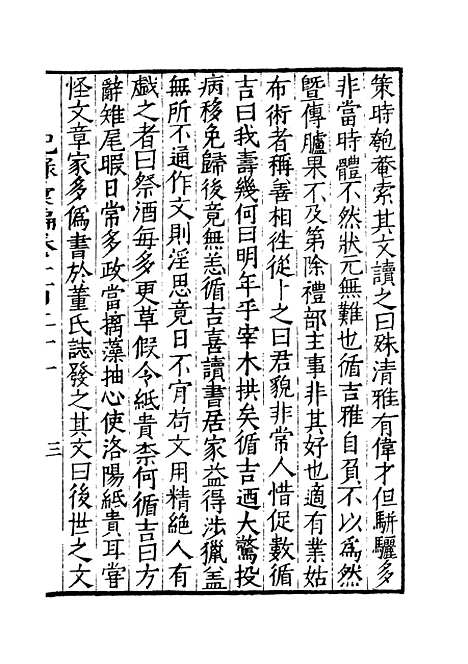 策時匏菴索其文讀之曰殊清雅有偉才但駢驪多
非當時體不然狀元無難也循吉雅自負不以為然
暨傳臚果不及第除禮部主事非其好也適有業姑
布術者稱善相徃從卜之曰君貌非常人惜促數循
吉曰我壽幾何曰明年乎宰木拱矣循吉迺大驚投
病移免歸後竟無恙循吉喜讀書居家益得涉獵盖
無所不通作文則淫思竟日不肎苟文用精絶人有
戯之者曰祭酒每多更草假令紙貴柰何循吉曰方
辭雉尾暇日常多政當摛藻抽心使洛陽紙貴耳甞
怪文章家多偽書於董氏誌發之其文曰後世之文
紀録彙編卷一百二十一 三